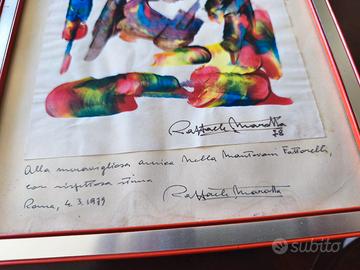 Raffaele Marotta
78
Alla meravigliosa amica Nella Mantovani Fattorelli,
con rispettosa stima
Roma, 4.3.1979 Raffaele Marotta
subito